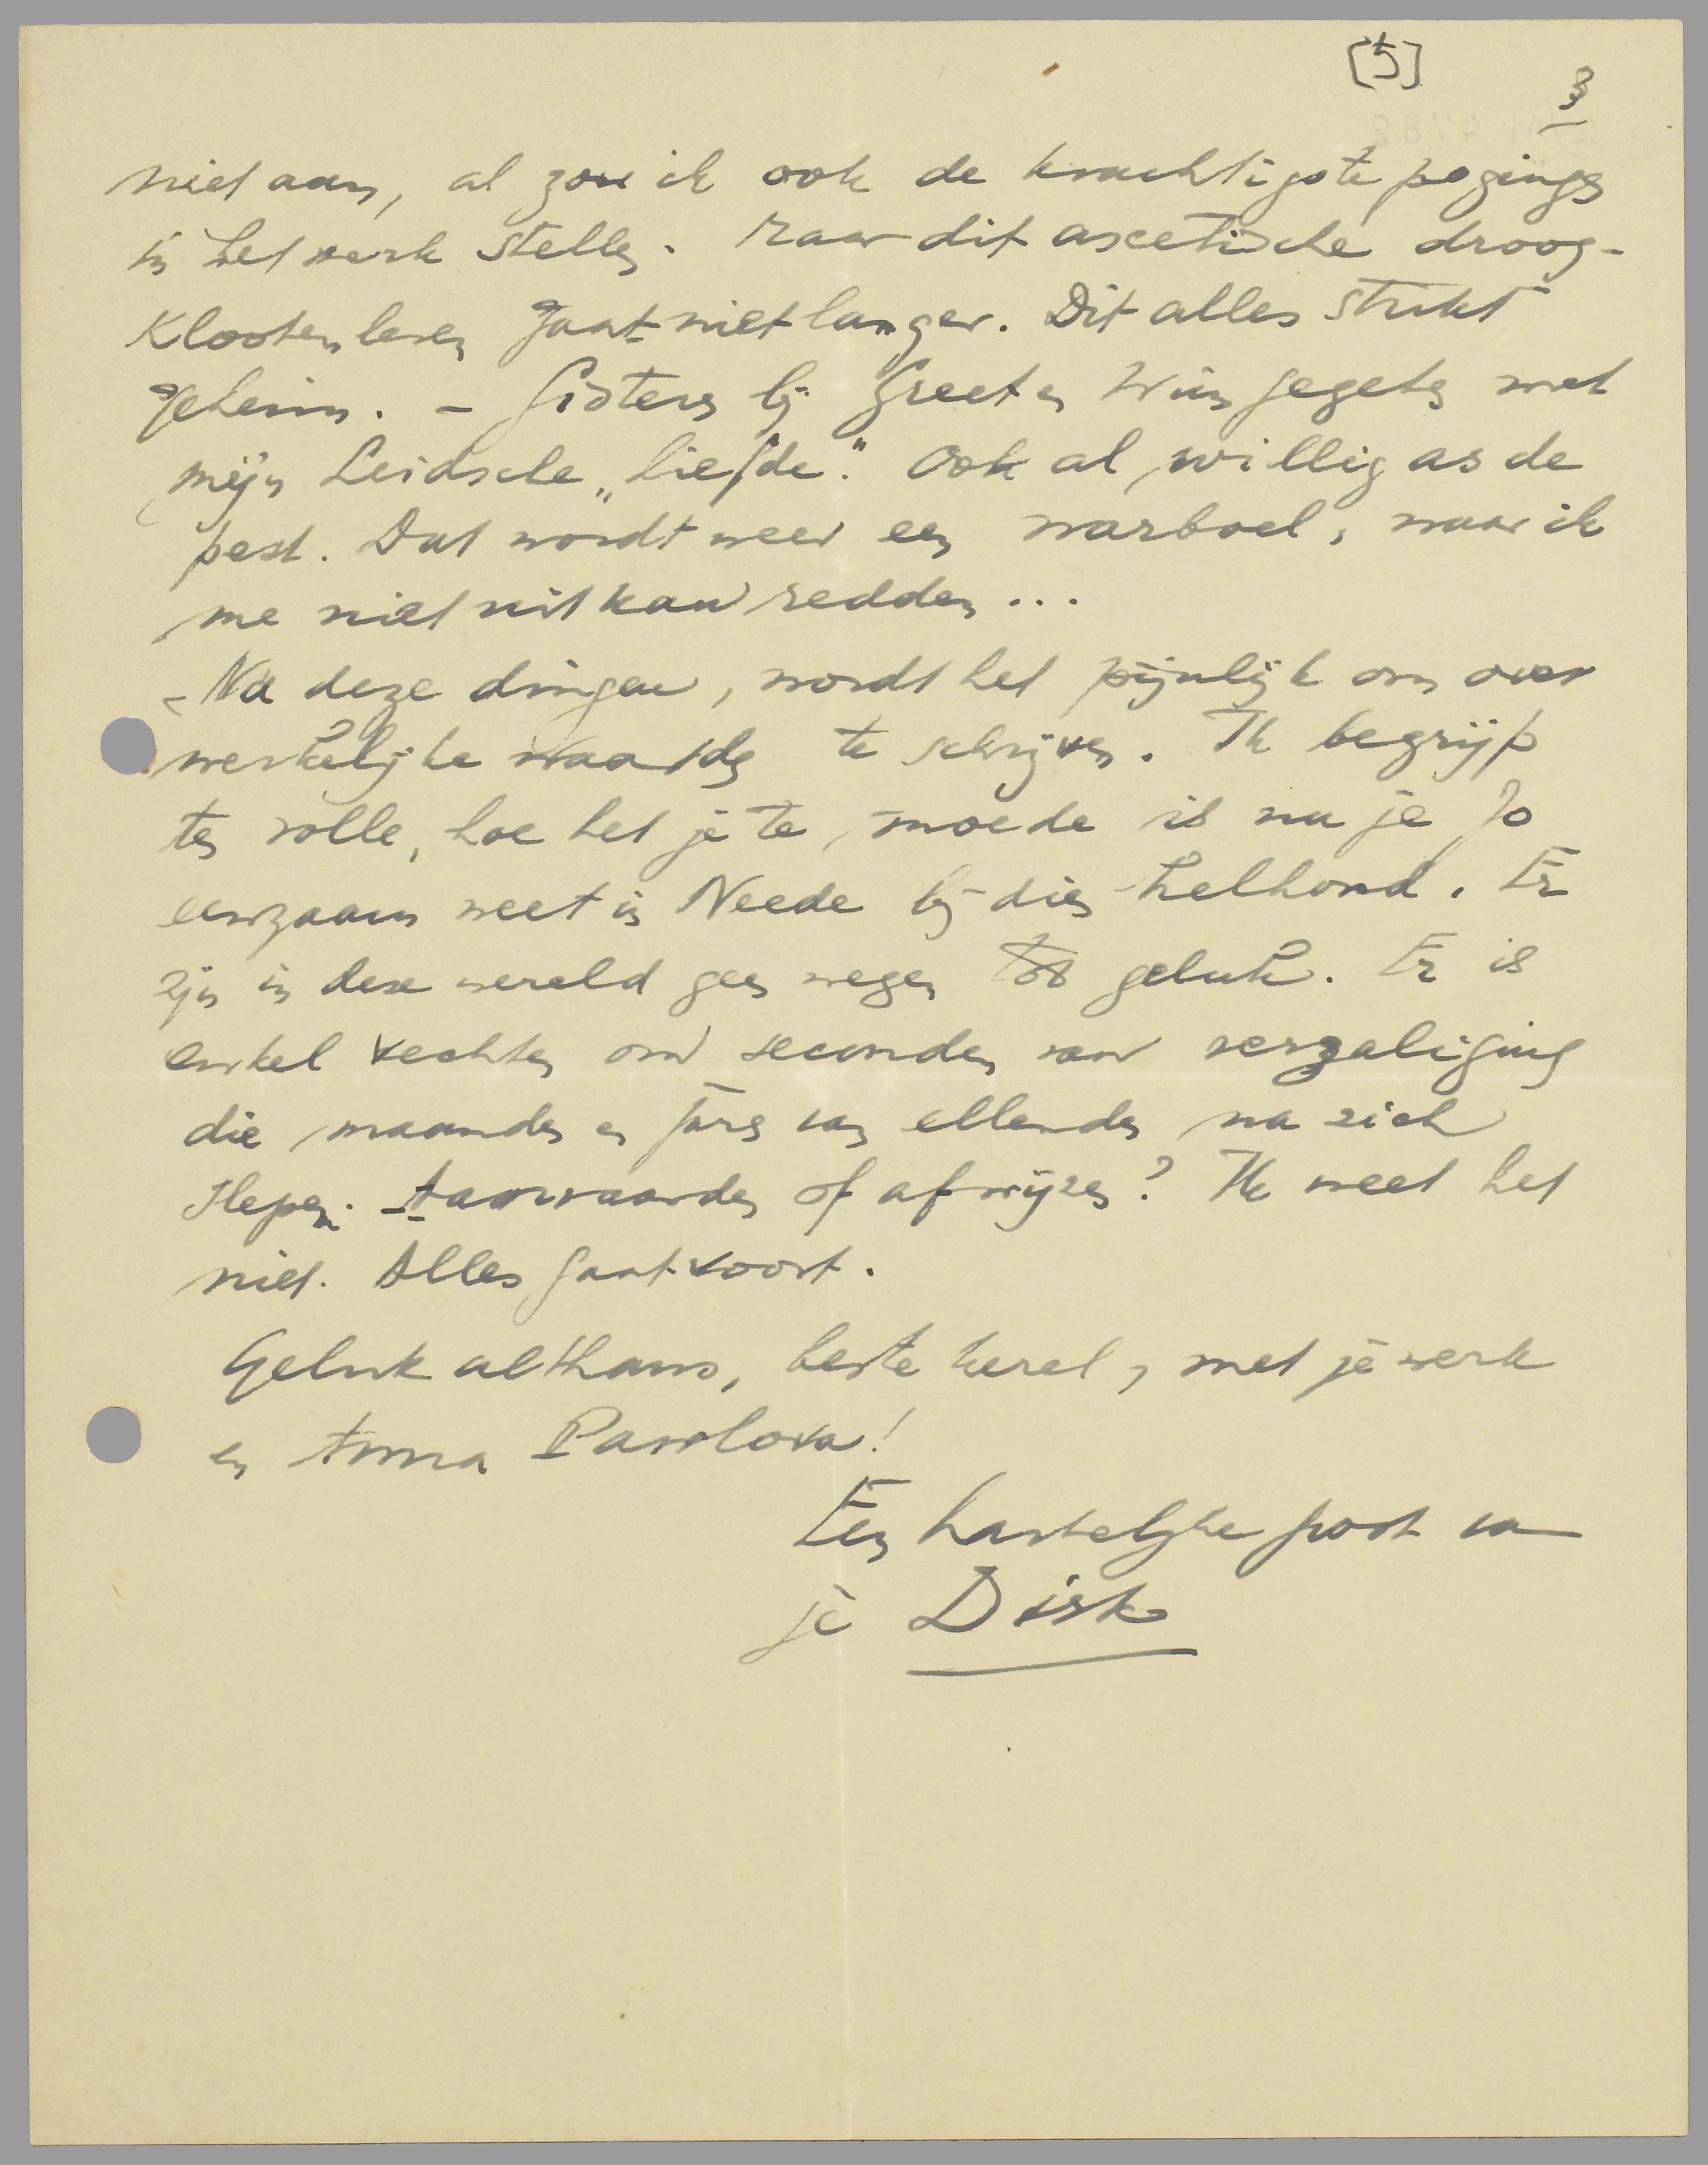 [5]
3
niet aan, al zou ik ook de krachtigste pogingen
in het werk stellen. Maar dit ascetische droog-
klooten leven gaat niet langer. Dit alles strikt
geheim. – Gisteren bij Greet en Wim gegeten met
mijn Leidsche „liefde". Ook al willig as de
pest. Dat wordt weer een warboel, waar ik
me niet uit kan redden ...
– Na deze dingen, wordt het pijnlijk om over
werkelijke waarden te schrijven. Ik begrijp
ten volle, hoe het je te moede is nu je Jo
eenzaam weet in Neede bij dien helhond. Er
zijn in deze wereld geen wegen tot geluk. Er is
enkel vechten om seconden van verzaliging
die maanden en jaren van ellenden na zich
slepen. Aanvaarden of afwijzen? Ik weet het
niet. Alles gaat voort.
Geluk althans, beste kerel, met je werk
en Anna Pawlowa!
Een hartelijke poot van
je Dirk